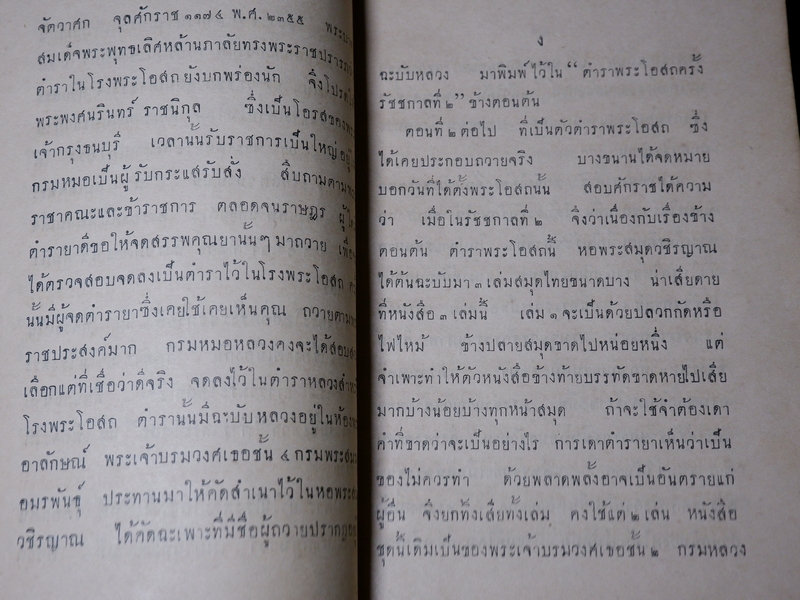 จัตวาศก จุลศักราช ๑๑๗๔ พ.ศ. ๒๓๕๕
สมเด็จพระพุทธเลิศหล้านภาลัยทรงพระราชปรารภ
ตำราในโรงพระโอสถ ยังบกพร่องนัก จึ่งโปรด
พระพงศนรินทร์ ราชนิกุล ซึ่งเป็นโอรสของ
เจ้ากรุงธนบุรี เวลานั้นรับราชการเป็นใหญ่
กรมหมอเป็นผู้รับกระแสรับสั่ง สืบถามตาม
ราชาคณะและข้าราชการ ตลอดจนราษฎร
ตำรายาดีขอให้จดสรรพคุณยานั้นๆ มาถวาย
ได้ตรวจสอบจดลงเป็นตำราไว้ในโรงพระโอสถ
นั้นมีผู้จดตำรายาซึ่งเคยใช้เคยเห็นคุณ ถวายตาม
ราชประสงค์มาก กรมหมอหลวงคงจะได้สอบ
เลือกแต่ที่เชื่อว่าดีจริง จดลงไว้ในตำราหลวง
โรงพระโอสถ ตำรานั้นมีฉะบับหลวงอยู่ในห้อง
อาลักษณ์ พระเจ้าบรมวงศ์เธอชั้น ๔ กรมพระ
อมรพันธุ์ ประทานมาให้คัดสำเนาไว้ในหอพระ
วชิรญาณ ได้คัดฉะเพาะที่มีชื่อผู้ถวายปรากฏ
ง
ฉะบับหลวง มาพิมพ์ไว้ใน “ ตำราพระโอสถครั้ง
รัชชกาลที่ ๒ ” ข้างตอนต้น
ตอนที่ ๒ ต่อไป ที่เป็นตัวตำราพระโอสถ ซึ่ง
ได้เคยประกอบถวายจริง บางขนานได้จดหมาย
บอกวันที่ได้ตั้งพระโอสถนั้น สอบศักราชได้ความ
ว่า เมื่อในรัชชกาลที่ ๒ จึงว่าเนื่องกับเรื่องข้าง
ตอนต้น ตำราพระโอสถนี้ หอพระสมุดวชิรญาณ
ได้ต้นฉะบับมา ๓ เล่มสมุดไทยขนาดบาง น่าเสียดาย
ที่หนังสือ ๓ เล่มนี้ เล่ม ๑ จะเป็นด้วยปลวกกัดหรือ
ไฟไหม้ ข้างปลายสมุดขาดไปหน่อยหนึ่ง แต่
จำเพาะทำให้ตัวหนังสือข้างท้ายบรรทัดขาดหายไปเสีย
มากบ้างน้อยบ้างทุกหน้าสมุด ถ้าจะใช้จำต้องเดา
คำที่ขาดว่าจะเป็นอย่างไร การเดาตำรายาเห็นว่าเป็น
ของไม่ควรทำ ด้วยพลาดพลั้งอาจเป็นอันตรายแก่
ผู้อื่น จึงยกทิ้งเสียทั้งเล่ม คงใช้แต่ ๒ เล่น หนังสือ
ชุดนี้เดิมเป็นของพระเจ้าบรมวงศ์เธอชั้น ๒ กรมหลวง